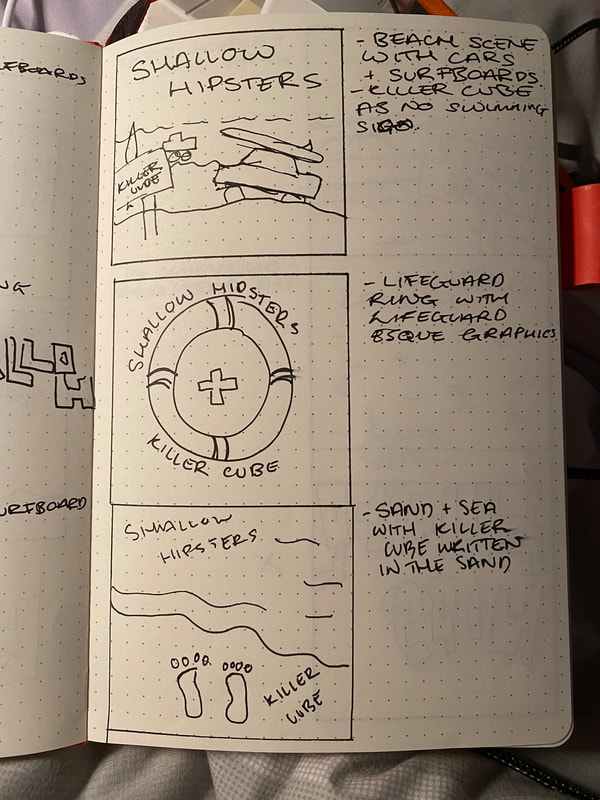 EBOARDS
NG
URFBOARD
SHALLOW
HIPSTERS
KILLER
CUBE
- BEACH SCENE
WITH CARS
+ SURFBOARDS.
- KILLER CUBE
AS NO SWIMMING
SIGN.
SHALLOW HIPSTERS
KILLER CUBE
- LIFEGUARD
RING WITH
LIFEGUARD
ESQUE GRAPHICS
SHALLOW
HIPSTERS
KILLER
CUBE
- SAND + SEA
WITH KILLER
CUBE WRITTEN
IN THE SAND